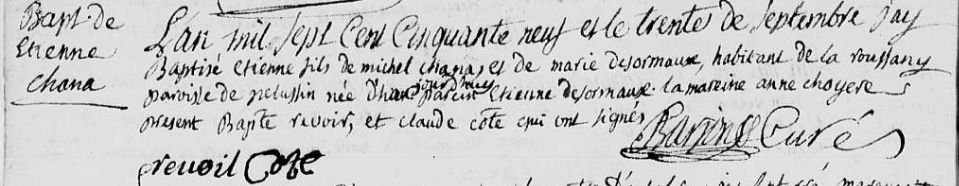 Bapt. de
Etienne
Chana
L'an mil sept Cent Cinquante neuf et le trente de septembre jay
Baptisé etienne fils de michel chana, et de marie desormaux, habitant de la
paroisse de pelussin née parein etienne desormaux. la mareine anne choyere
present Bapte revoir, et claude cote qui ont signés
Curé
revoil Cote